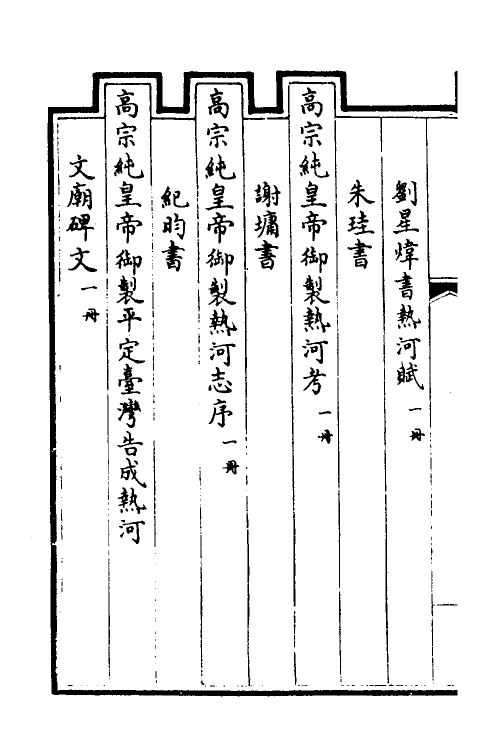 劉星煒書熱河賦一冊
朱珪書
高宗純皇帝御製熱河考一冊
謝墉書
高宗純皇帝御製熱河志序一冊
紀昀書
高宗純皇帝御製平定臺灣告成熱河
文廟碑文一冊